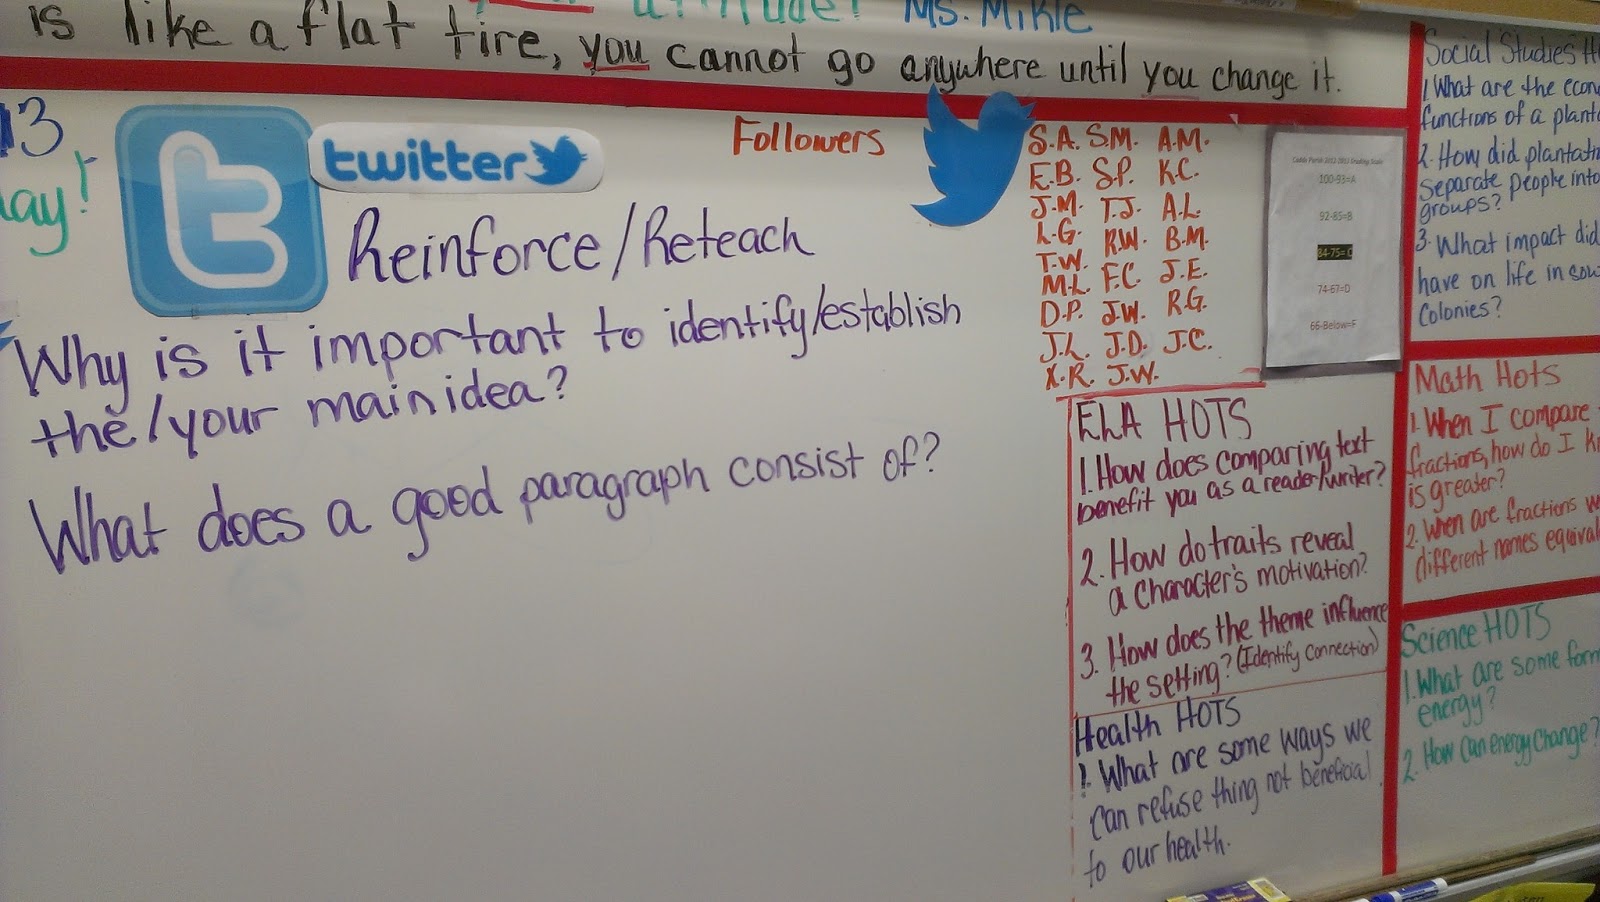 attitude! Ms. Mikle
is like a flat tire, you cannot go anywhere until you change it.
13
ay!
t
twitter
Reinforce/Reteach
Why is it important to identify/establish
the/your main idea?
What does a good paragraph consist of?
Followers
S.A. S.M. A.M.
E.B. S.P. K.C.
J.M. T.J. A.L.
L.G. R.W. B.M.
T.W. F.C. J.E.
M.L. J.W. R.G.
D.P. J.D. J.C.
J.L. J.W.
X.R.
Caddo Parish 2012-2013 Grading Scale
100-93=A
92-85=B
84-75=C
74-67=D
66-Below=F
ELA HOTS
1. How does comparing text
benefit you as a reader/writer?
2. How do traits reveal
a character's motivation?
3. How does the theme influence
the setting? (Identify Connection)
Health HOTS
1. What are some ways we
can refuse thing not beneficial
to our health.
Social Studies H
1 What are the econ
functions of a planta
2. How did plantati
separate people into
groups?
3. What impact did
have on life in sou
colonies?
Math Hots
1. When I compare
fractions, how do I k
is greater?
2. When are fractions w
different names equival
Science HOTS
1. What are some form
energy?
2. How can energy change?